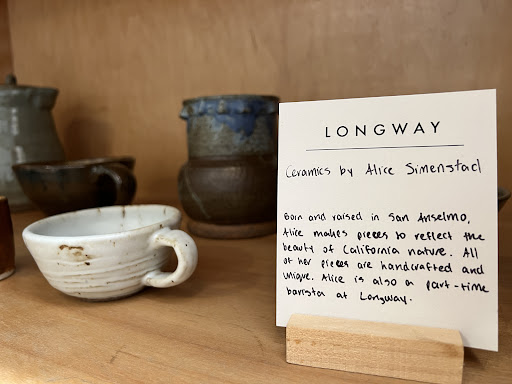 LONGWAY
Ceramics by Alice Simenstad
Born and raised in San Anselmo,
Alice makes pieces to reflect the
beauty of California nature. All
of her pieces are handcrafted and
unique. Alice is also a part-time
barista at Longway.